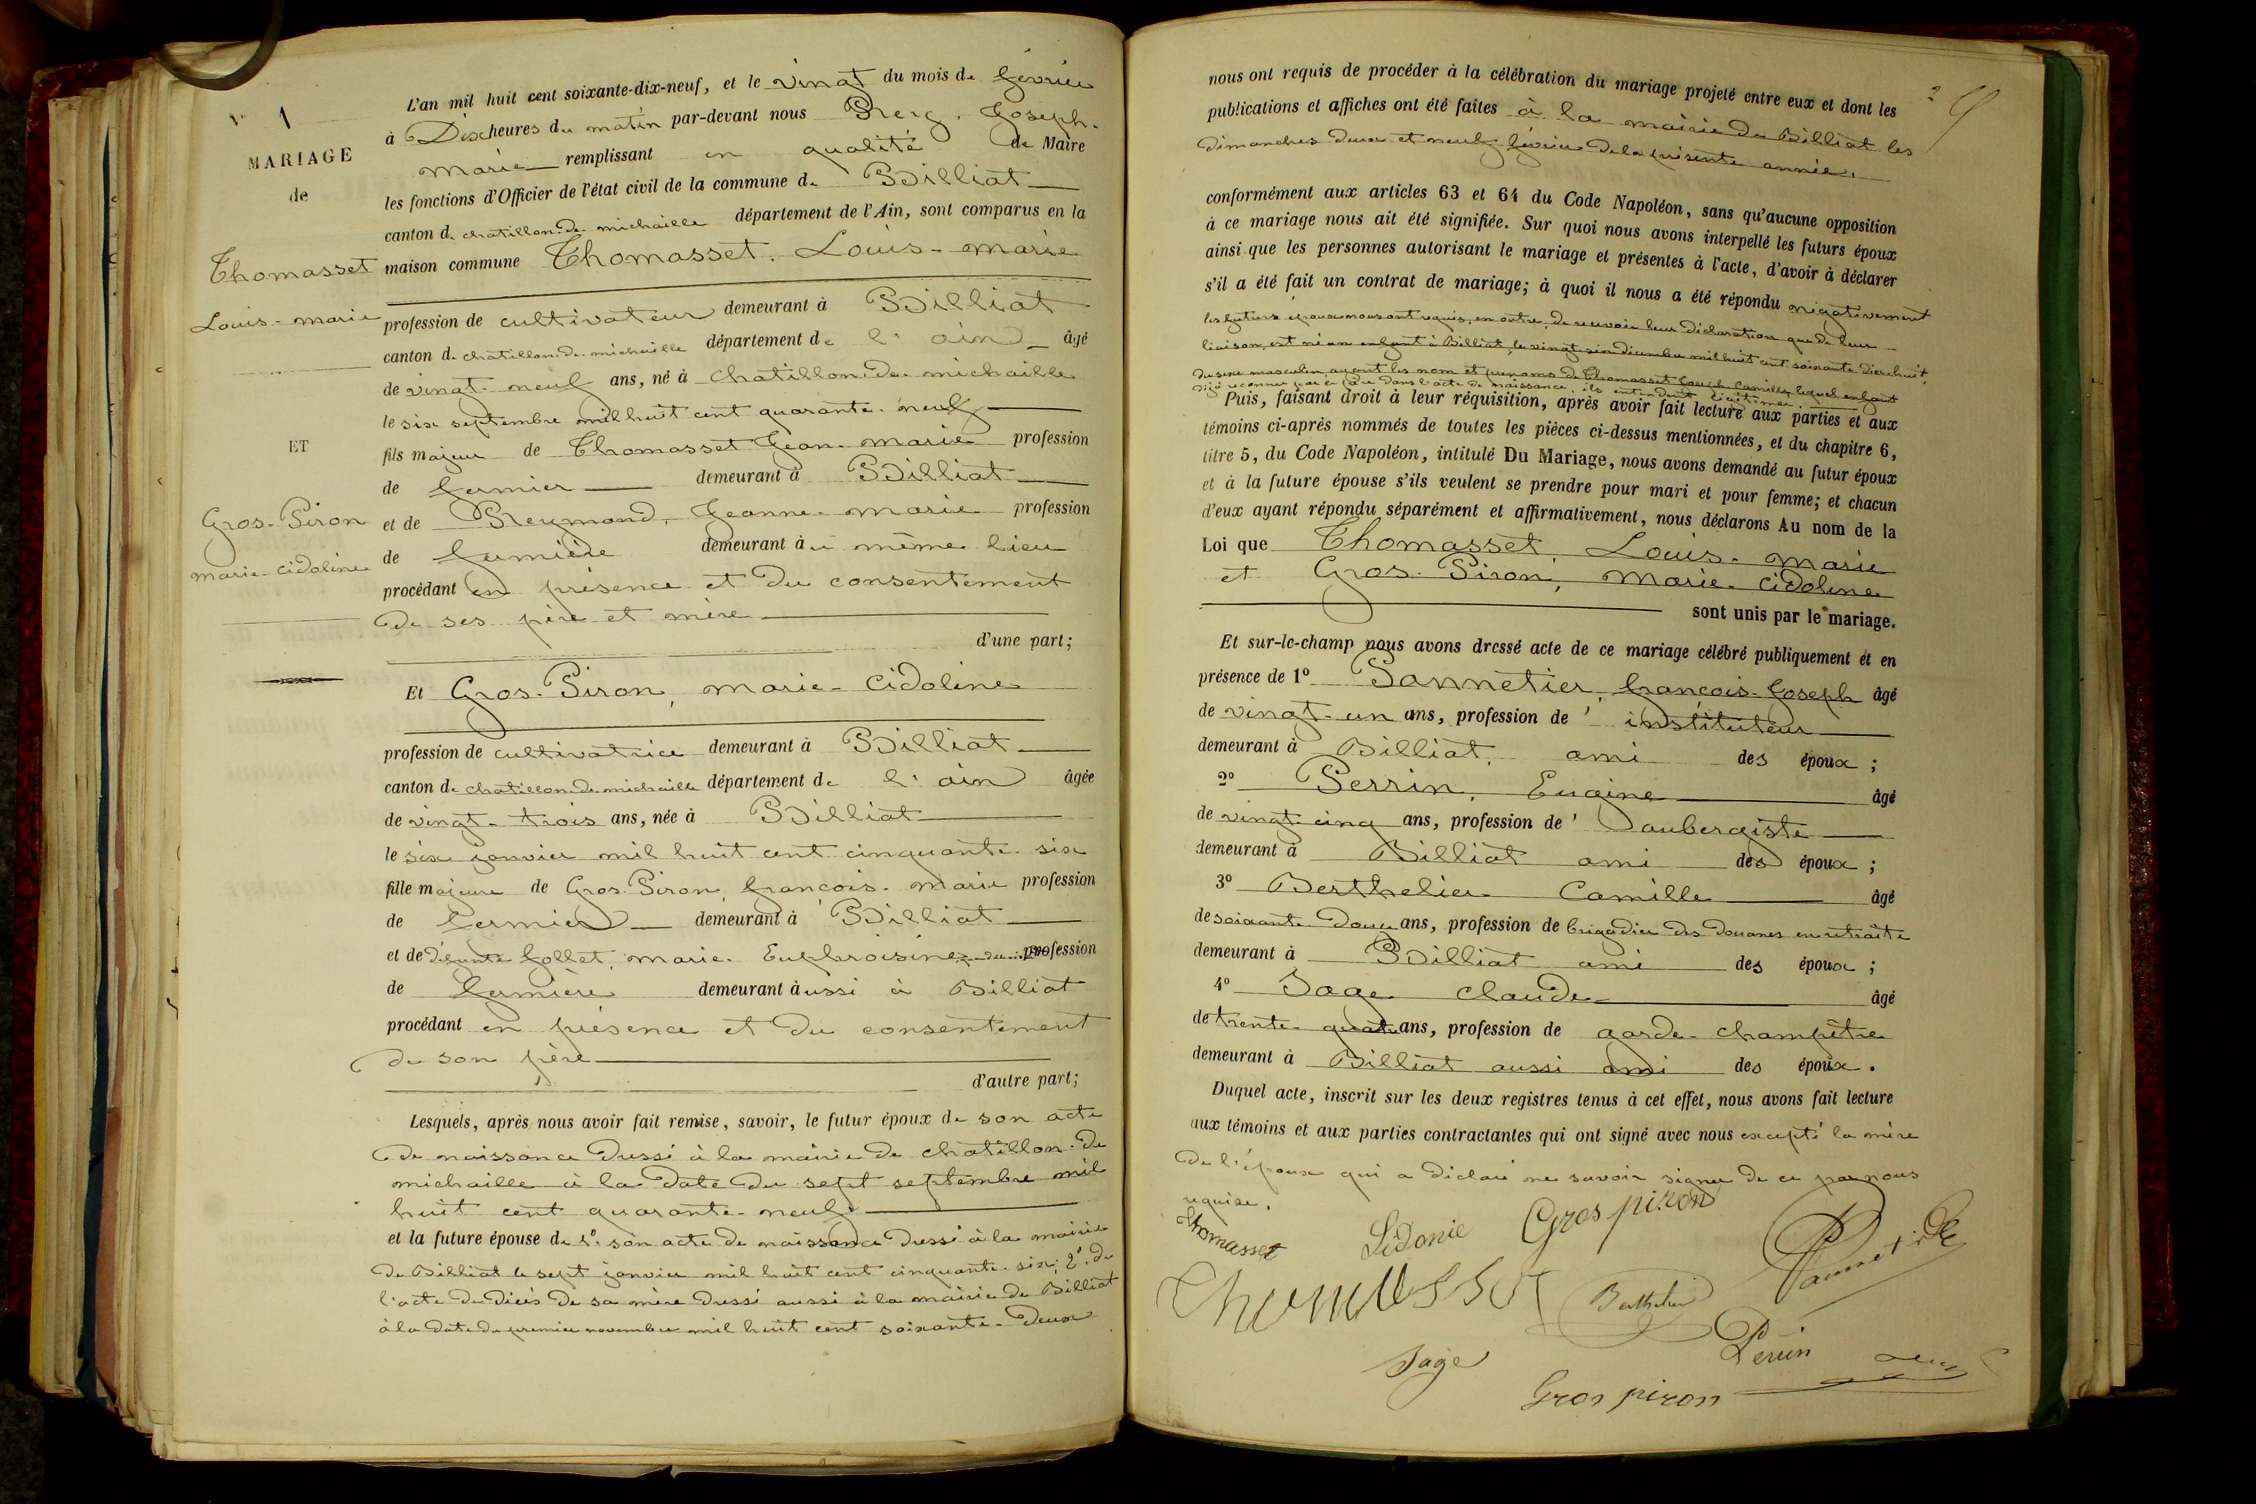 N° 1
MARIAGE
de
Thomasset
Louis-marie
ET
Gros-Piron
marie-cidoline
L'an mil huit cent soixante-dix-neuf, et le vingt du mois de février
à Dix heures du matin par-devant nous Joseph-
marie remplissant en qualité de Maire
les fonctions d'Officier de l'état civil de la commune de Billiat
canton de chatillon-de-michaille département de l'Ain, sont comparus en la
maison commune Thomasset, Louis-marie
profession de cultivateur demeurant à Billiat
canton de chatillon-de-michaille département de l'ain âgé
de vingt-neuf ans, né à chatillon-de-michaille
le six septembre mil huit cent quarante-neuf
fils majeur de Thomasset Jean-marie profession
de fermier demeurant à Billiat
et de Reymond, Jeanne-marie profession
de fermière demeurant à u même lieu
procédant en présence et du consentement
de ses père et mère
d'une part;
Et Gros-Piron, marie-cidoline
profession de cultivatrice demeurant à Billiat
canton de chatillon-de-michaille département de l'ain âgée
de vingt-trois ans, née à Billiat
le six janvier mil huit cent cinquante-six
fille majeure de Gros-Piron, françois-marie profession
de fermier demeurant à Billiat
et de défunte follet, marie-Euphroisine profession
de fermière demeurant à ussi à Billiat
procédant en présence et du consentement
de son père
d'autre part;
Lesquels, après nous avoir fait remise, savoir, le futur époux de son acte
de naissance dressé à la mairie de chatillon-de
michaille à la date du sept septembre mil
huit cent quarante-neuf
et la future épouse de 1° son acte de naissance dressé à la mairie
de Billiat le sept janvier mil huit cent cinquante-six; 2° de
l'acte de décès de sa mère dressé aussi à la mairie de Billiat
à la date du premier novembre mil huit cent soixante-deux
2
nous ont requis de procéder à la célébration du mariage projeté entre eux et dont les
publications et affiches ont été faites à la mairie de Billiat les
dimanches deux et neuf février de la présente année,
conformément aux articles 63 et 64 du Code Napoléon, sans qu'aucune opposition
à ce mariage nous ait été signifiée. Sur quoi nous avons interpellé les futurs époux
ainsi que les personnes autorisant le mariage et présentes à l'acte, d'avoir à déclarer
s'il a été fait un contrat de mariage; à quoi il nous a été répondu négativement
les futurs époux nous ont requis, en outre, de recevoir leur déclaration que de leur
liaison, est né un enfant à Billiat, le vingt-six décembre mil huit cent soixante dix-huit,
du sexe masculin, ayant les nom et prénoms de Thomasset Joseph Camille, lequel enfant
déjà reconnu par le père dans l'acte de naissance, ils entendent légitimer.
Puis, faisant droit à leur réquisition, après avoir fait lecture aux parties et aux
témoins ci-après nommés de toutes les pièces ci-dessus mentionnées, et du chapitre 6,
titre 5, du Code Napoléon, intitulé Du Mariage, nous avons demandé au futur époux
et à la future épouse s'ils veulent se prendre pour mari et pour femme; et chacun
d'eux ayant répondu séparément et affirmativement, nous déclarons Au nom de la
Loi que Thomasset, Louis-marie
et Gros-Piron, Marie-cidoline
sont unis par le mariage.
Et sur-le-champ nous avons dressé acte de ce mariage célébré publiquement et en
présence de 1° Pannetier, françois-Joseph âgé
de vingt-un ans, profession de instituteur
demeurant à Billiat, ami des époux;
2° Perrin, Eugène âgé
de vingt-cinq ans, profession de aubergiste
demeurant à Billiat ami des époux;
3° Berthelier Camille âgé
de soixante-douze ans, profession de brigadier des douanes en retraite
demeurant à Billiat ami des époux;
4° Sage claude âgé
de trente-quatre ans, profession de garde-champêtre
demeurant à Billiat aussi ami des époux.
Duquel acte, inscrit sur les deux registres tenus à cet effet, nous avons fait lecture
aux témoins et aux parties contractantes qui ont signé avec nous excepté la mère
de l'époux qui a déclaré ne savoir signer de ce par nous
requise.
Thomasset Sidonie Gros piron Pannetier
Thomasset Berthelier
Sage Perrin
Gros piron